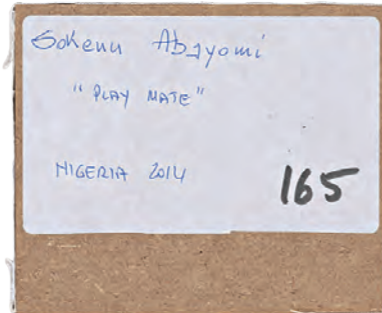 Sokenu Abayomi
"PLAY MATE"
NIGERIA 2014
165